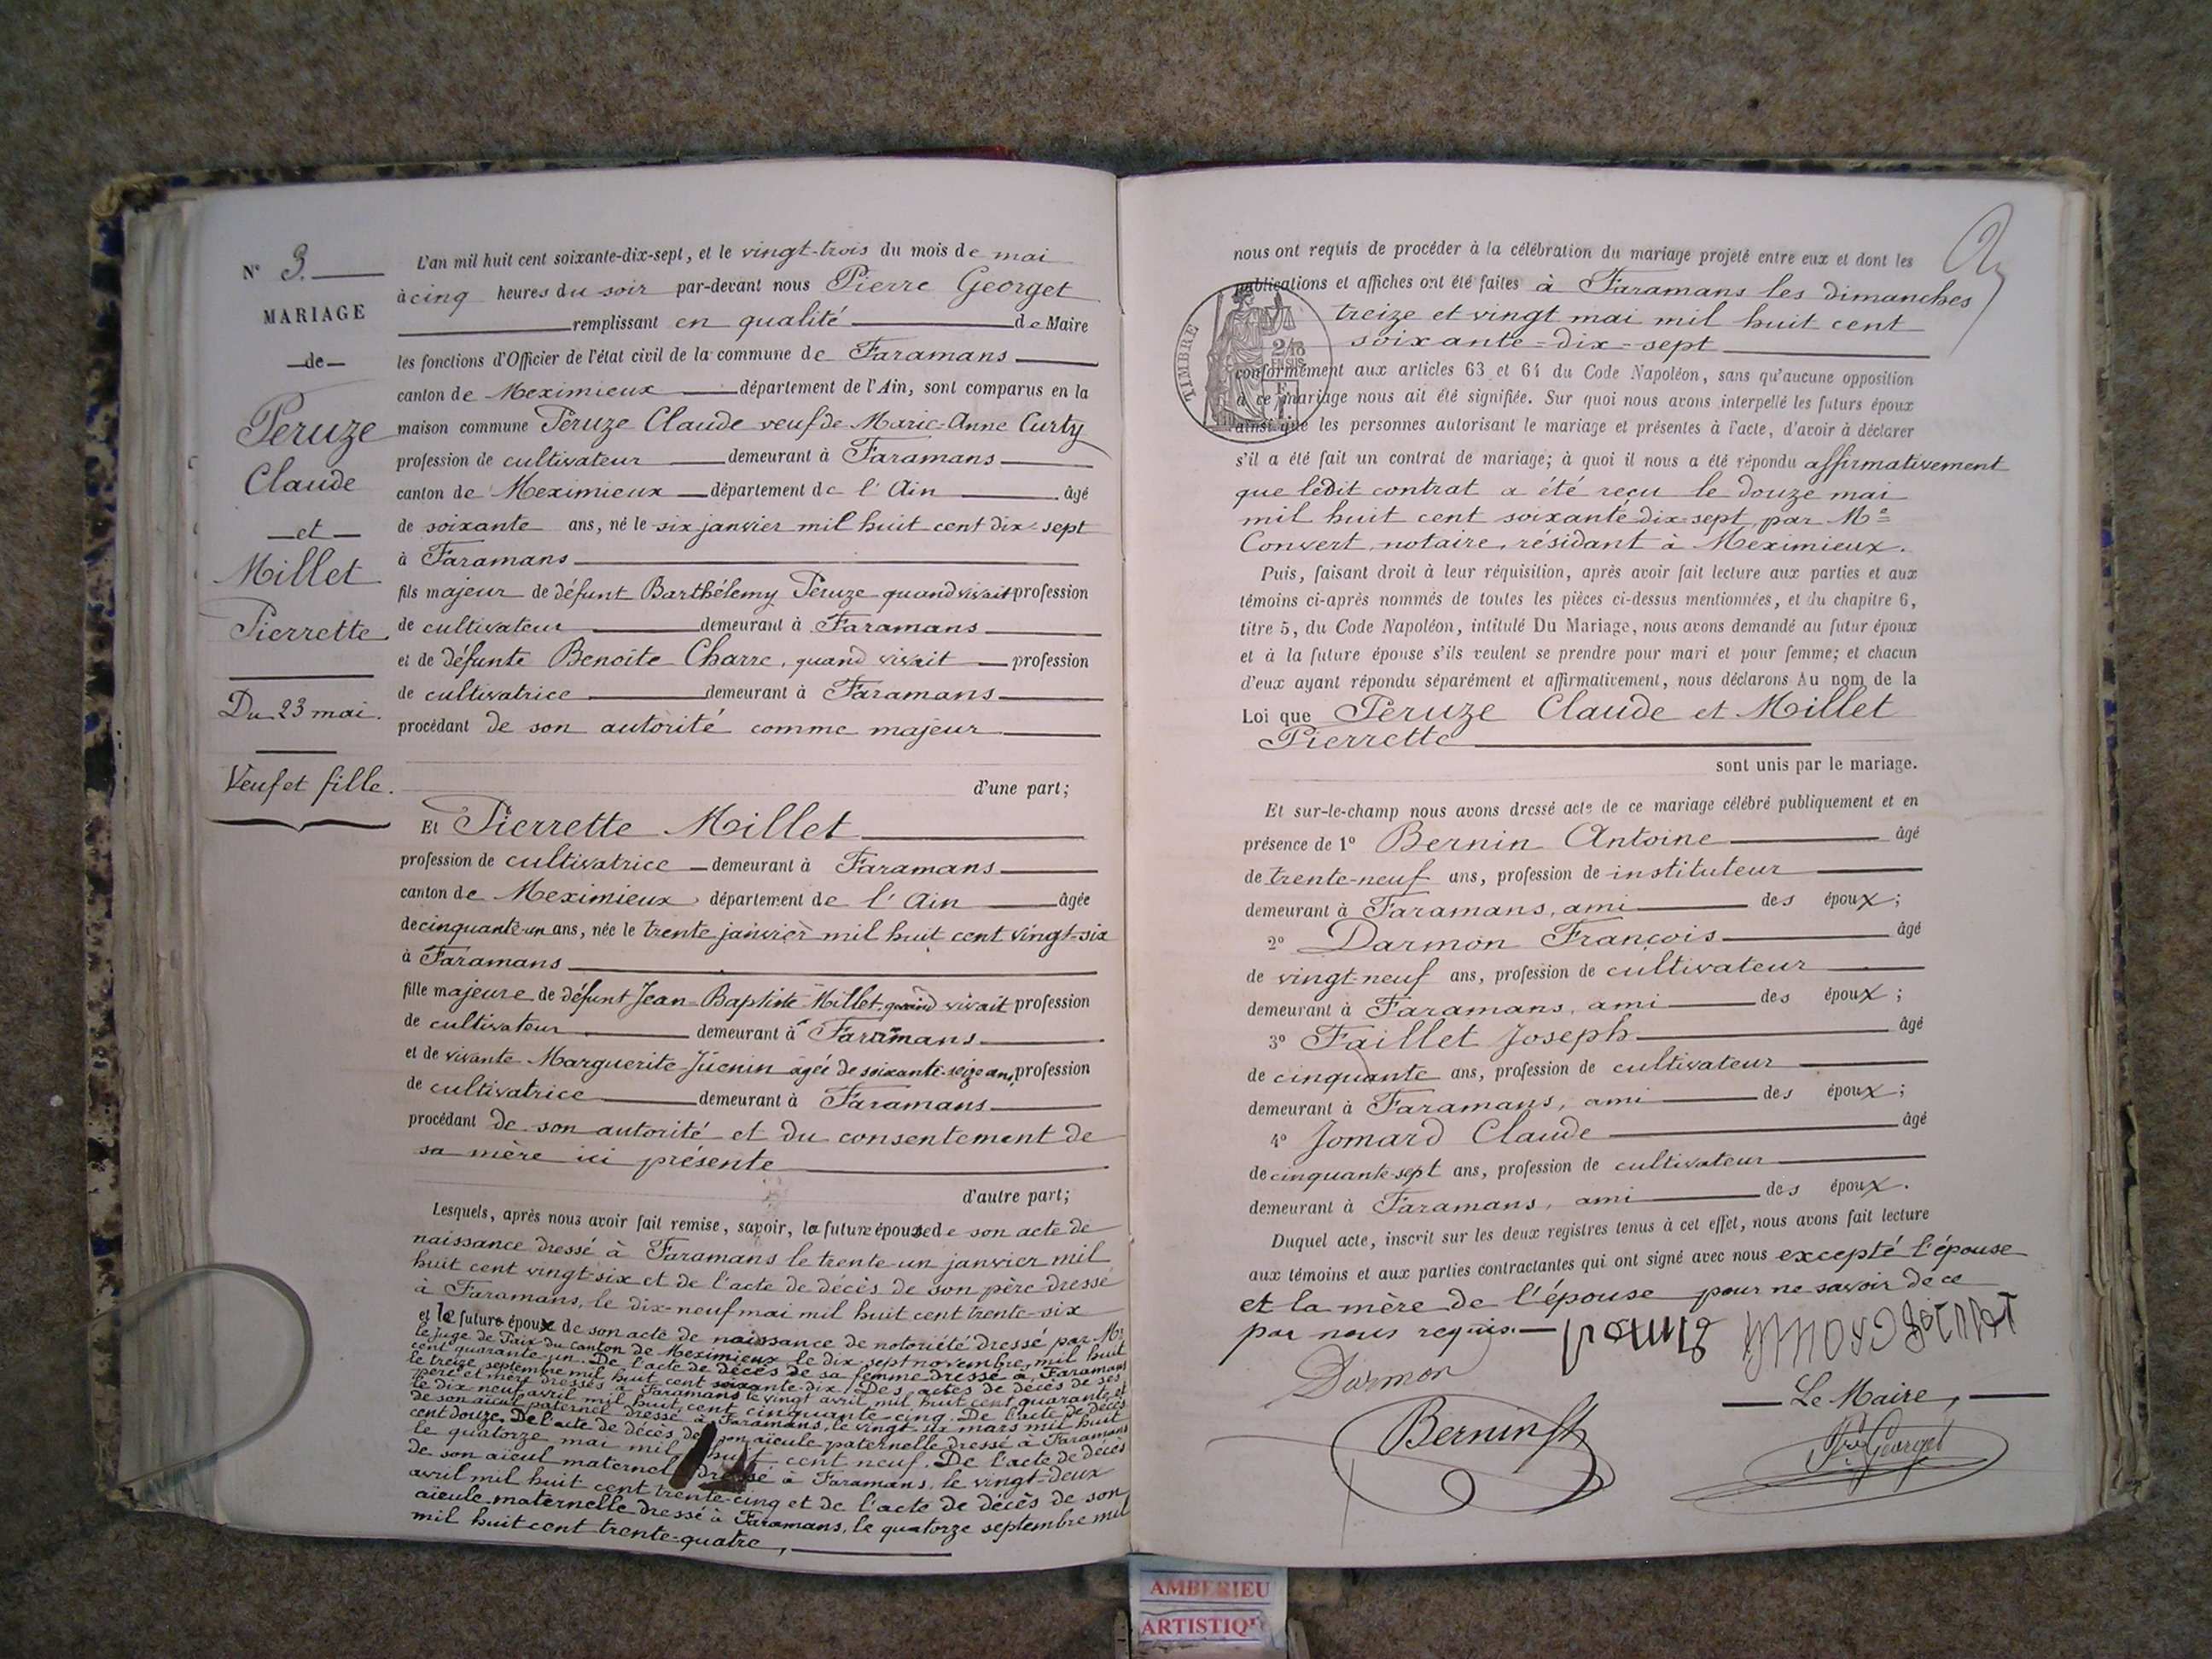 N° 3.
MARIAGE
de
Peruze
Claude
et
Millet
Pierrette
Du 23 mai.
Veuf et fille.
L'an mil huit cent soixante-dix-sept, et le vingt-trois du mois de mai
à cinq heures du soir par-devant nous Pierre Georget
remplissant en qualité de Maire
les fonctions d'Officier de l'état civil de la commune de Faramans
canton de Meximieux département de l'Ain, sont comparus en la
maison commune Péruze Claude veuf de Marie-Anne Curty
profession de cultivateur demeurant à Faramans
canton de Meximieux département de l'Ain âgé
de soixante ans, né le six janvier mil huit cent dix-sept
à Faramans
fils majeur de défunt Barthélemy Péruze quand vivait profession
de cultivateur demeurant à Faramans
et de défunte Benoite Charre, quand vivait profession
de cultivatrice demeurant à Faramans
procédant de son autorité comme majeur
d'une part;
Et Pierrette Millet
profession de cultivatrice demeurant à Faramans
canton de Meximieux département de l'Ain âgée
de cinquante-un ans, née le trente janvier mil huit cent vingt-six
à Faramans
fille majeure de défunt Jean-Baptiste Millet, quand vivait profession
de cultivateur demeurant à Faramans
et de vivante Marguerite Juenin âgée de soixante-seize ans, profession
de cultivatrice demeurant à Faramans
procédant de son autorité et du consentement de
sa mère ici présente
d'autre part;
Lesquels, après nous avoir fait remise, savoir, la future épouse de son acte de
naissance dressé à Faramans le trente-un janvier mil
huit cent vingt-six et de l'acte de décès de son père dressé
à Faramans, le dix-neuf mai mil huit cent trente-six
et le future époux de son acte de naissance de notoriété dressé par Mr
le juge de Paix du canton de Meximieux le dix sept novembre, mil huit
cent quarante-un. De l'acte de décès de sa femme dressé à Faramans
le treize septembre mil huit cent soixante-dix. Des actes de décès de ses
père et mère dressés à Faramans le vingt avril mil huit cent quarante et
le dix neuf avril mil huit cent cinquante-cinq. De l'acte de décès
de son aïeul paternel dressé à Faramans, le vingt-six mars mil huit
cent douze. De l'acte de décès de son aïeule paternelle dressé à Faramans
le quatorze mai mil huit cent neuf. De l'acte de décès
de son aïeul maternel dressé à Faramans, le vingt-deux
avril mil huit cent trente-cinq et de l'acte de décès de son
aïeule maternelle dressé à Faramans, le quatorze septembre mil
mil huit cent trente-quatre,
nous ont requis de procéder à la célébration du mariage projeté entre eux et dont les
publications et affiches ont été faites à Faramans les dimanches
treize et vingt mai mil huit cent
soixante-dix-sept
TIMBRE
2/10
EN SUS
conformément aux articles 63 et 64 du Code Napoléon, sans qu'aucune opposition
à ce mariage nous ait été signifiée. Sur quoi nous avons interpellé les futurs époux
ainsi que les personnes autorisant le mariage et présentes à l'acte, d'avoir à déclarer
s'il a été fait un contrat de mariage; à quoi il nous a été répondu affirmativement
que ledit contrat a été reçu le douze mai
mil huit cent soixante dix-sept, par Me
Convert, notaire, résidant à Meximieux.
Puis, faisant droit à leur réquisition, après avoir fait lecture aux parties et aux
témoins ci-après nommés de toutes les pièces ci-dessus mentionnées, et du chapitre 6,
titre 5, du Code Napoléon, intitulé Du Mariage, nous avons demandé au futur époux
et à la future épouse s'ils veulent se prendre pour mari et pour femme; et chacun
d'eux ayant répondu séparément et affirmativement, nous déclarons Au nom de la
Loi que Péruze Claude et Millet
Pierrette
sont unis par le mariage.
Et sur-le-champ nous avons dressé acte de ce mariage célébré publiquement et en
présence de 1° Bernin Antoine âgé
de trente-neuf ans, profession de instituteur
demeurant à Faramans, ami des époux;
2° Darmon François âgé
de vingt-neuf ans, profession de cultivateur
demeurant à Faramans, ami des époux;
3° Faillet Joseph âgé
de cinquante ans, profession de cultivateur
demeurant à Faramans, ami des époux;
4° Jomard Claude âgé
de cinquante-sept ans, profession de cultivateur
demeurant à Faramans, ami des époux.
Duquel acte, inscrit sur les deux registres tenus à cet effet, nous avons fait lecture
aux témoins et aux parties contractantes qui ont signé avec nous excepté l'épouse
et la mère de l'épouse pour ne savoir de ce
par nous requis.
Darmon
Le Maire,
Bernin
Pre Georget
AMBERIEU
ARTISTIQU